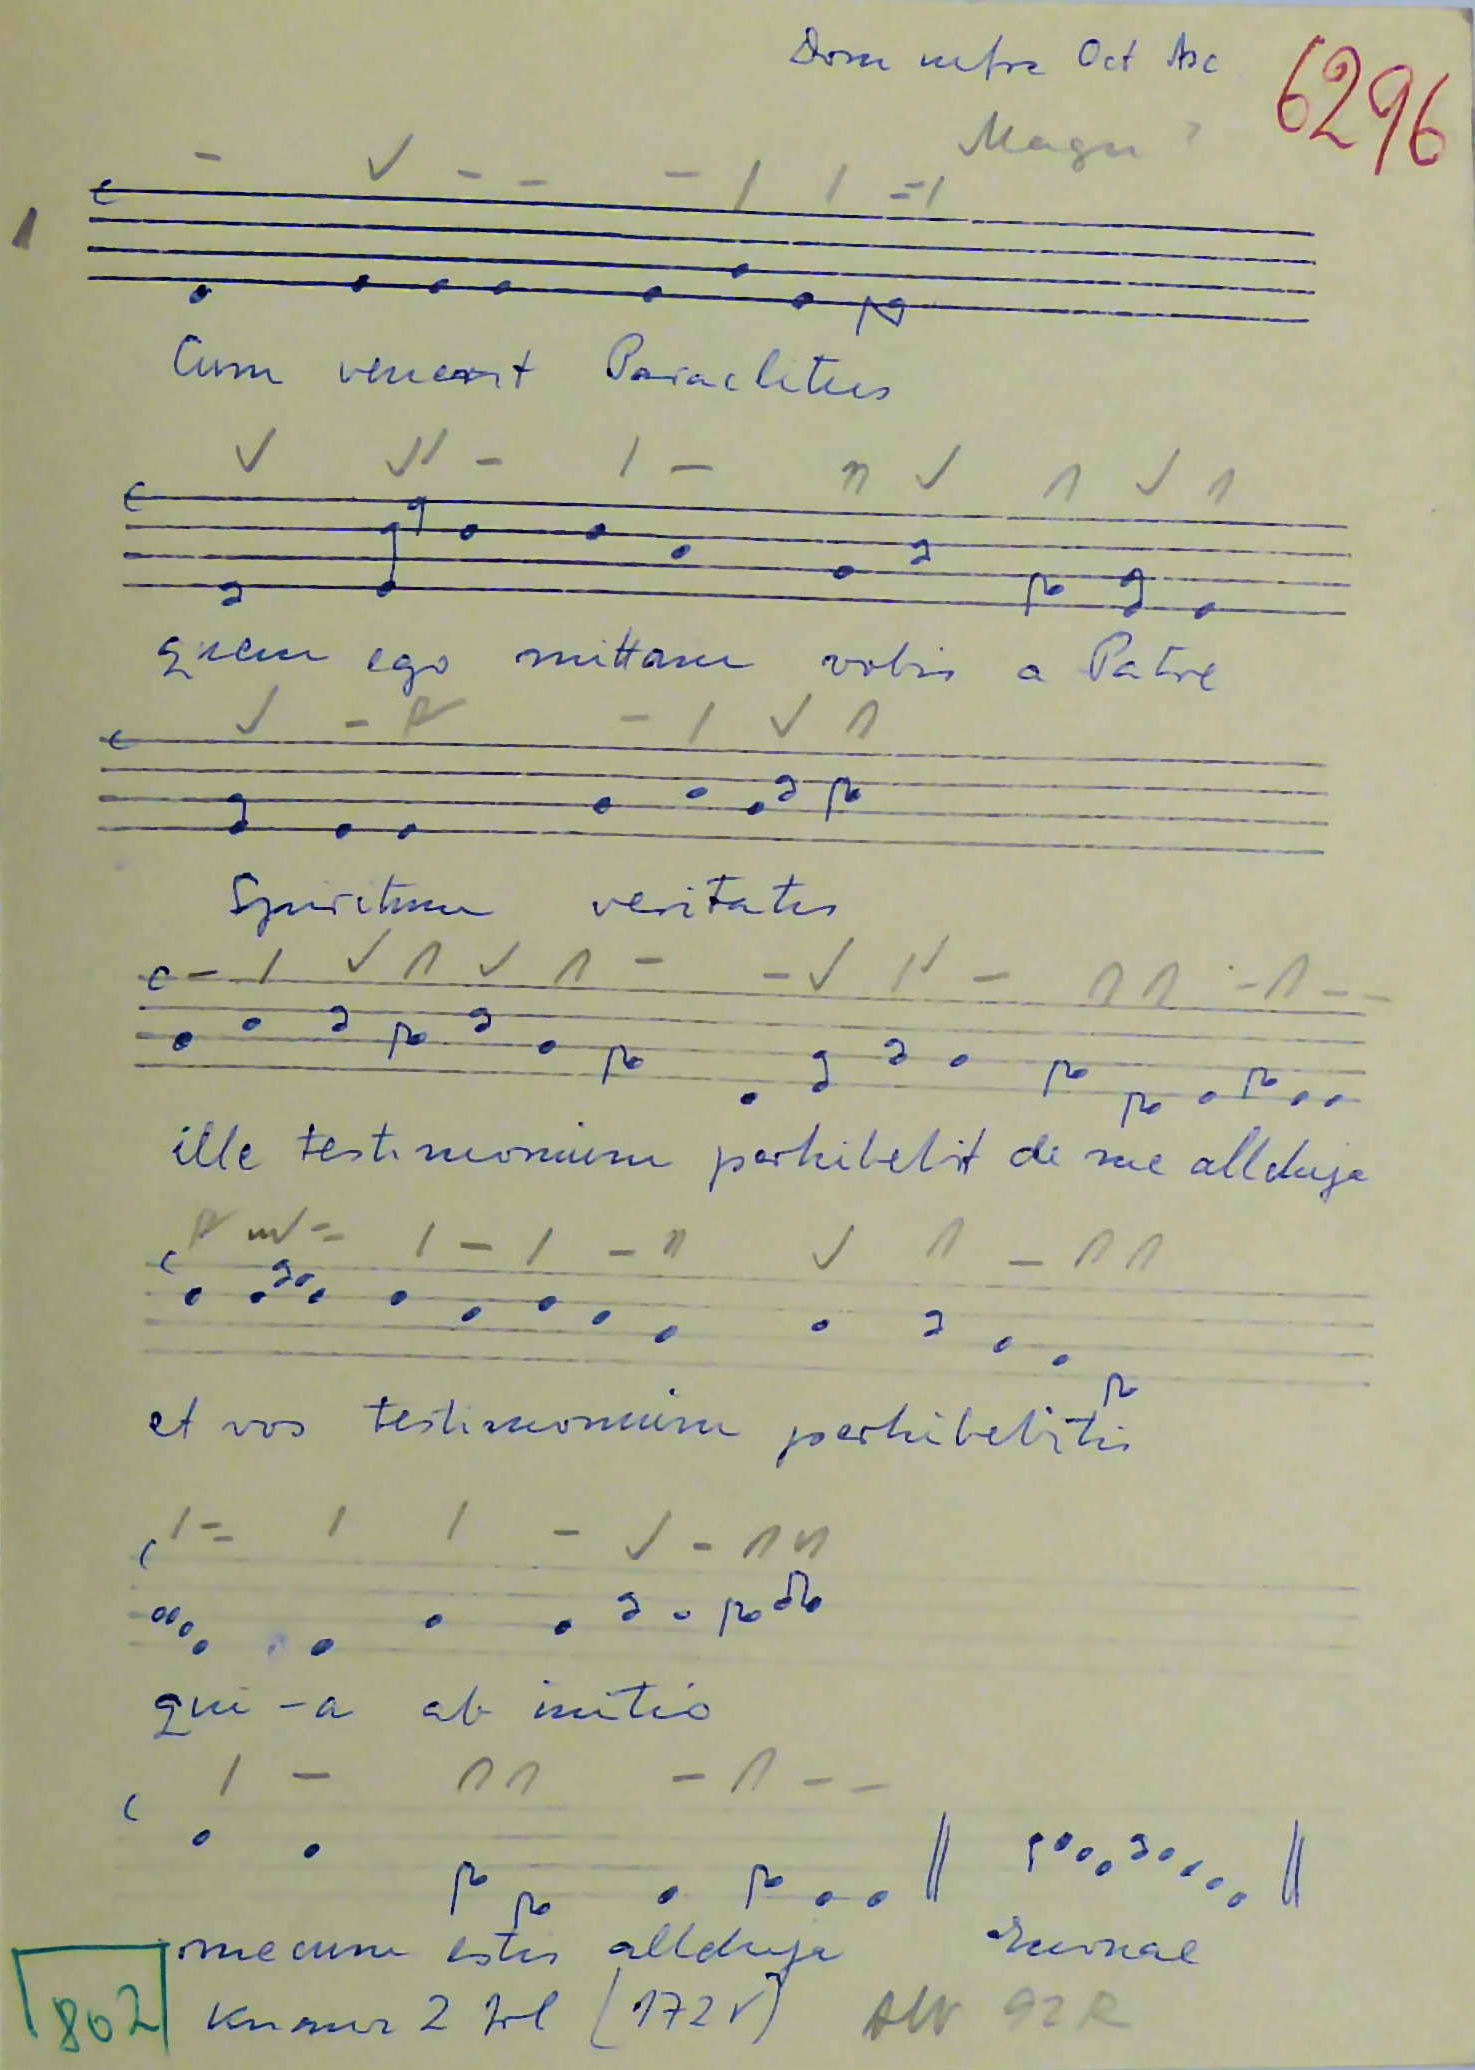 Dom infra Oct Asc
6296
Magn ?
1
Cum venerit Paraclitus
quem ego mittam vobis a Patre
Spiritum veritatis
ille testimonium perhibebit de me alleluja
et vos testimonium perhibebitis
qui-a ab initio
mecum estis alleluja
802 2 (172 r) 92 R